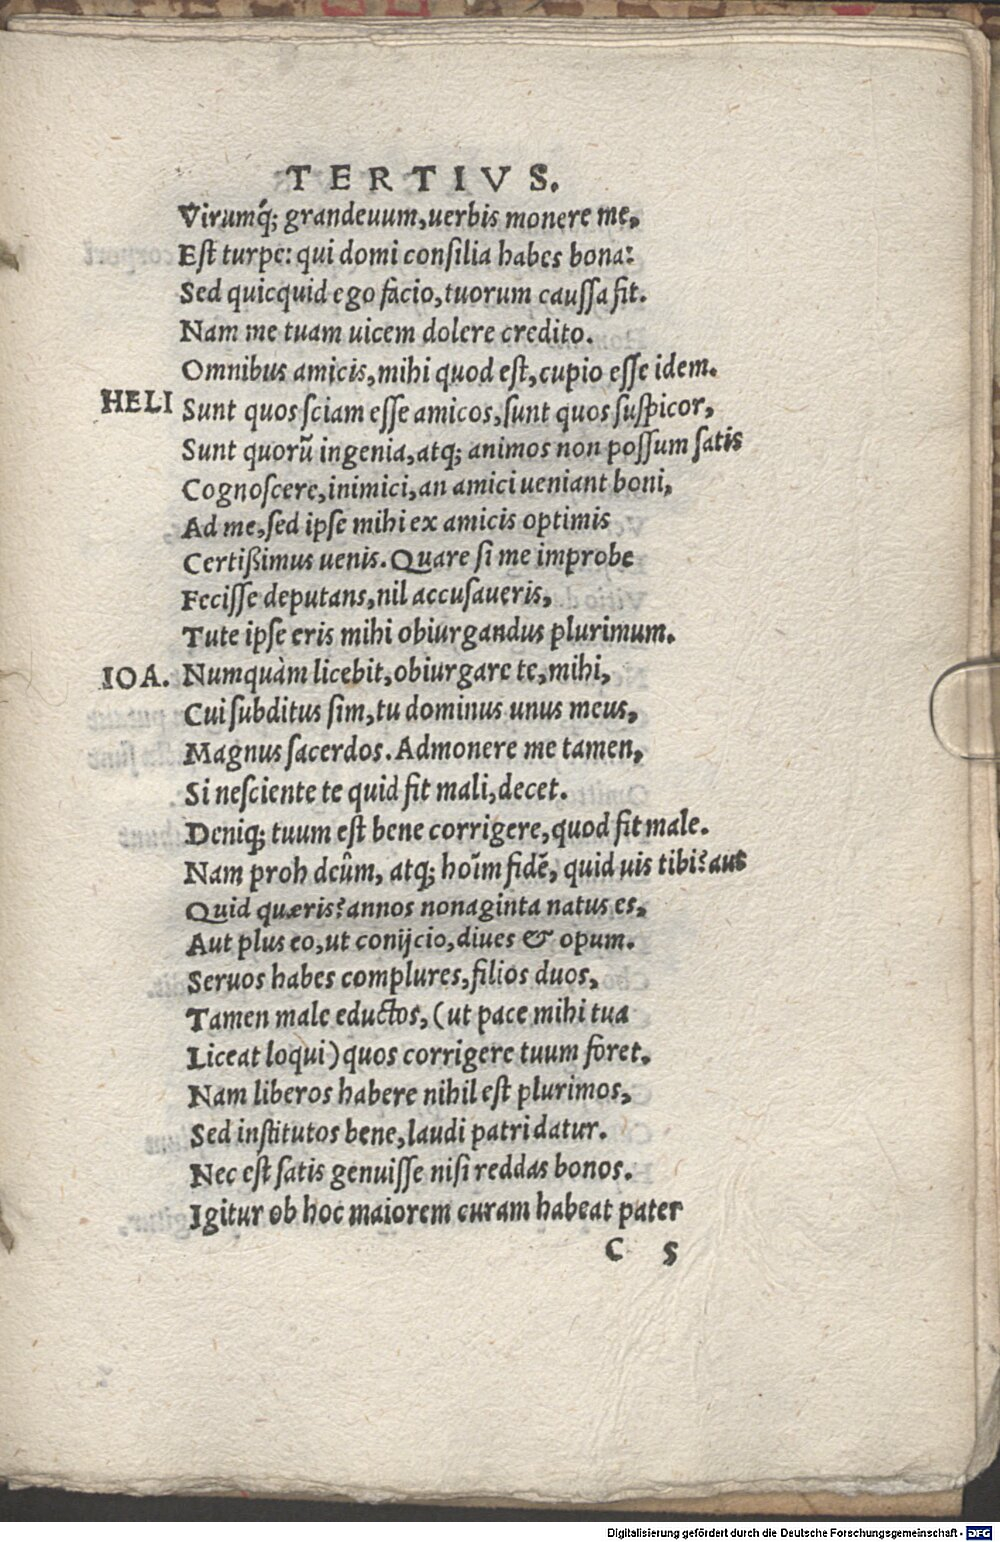 TERTIVS.
Virumq́; grandeuum, uerbis monere me,
Est turpe: qui domi consilia habes bona:
Sed quicquid ego facio, tuorum caussa fit.
Nam me tuam uicem dolere credito.
Omnibus amicis, mihi quod est, cupio esse idem.
HELI Sunt quos sciam esse amicos, sunt quos suspicor,
Sunt quorũ ingenia, atq; animos non possum satis
Cognoscere, inimici, an amici ueniant boni,
Ad me, sed ipse mihi ex amicis optimis
Certißimus uenis. Quare si me improbe
Fecisse deputans, nil accusaueris,
Tute ipse eris mihi obiurgandus plurimum.
IOA. Numquàm licebit, obiurgare te, mihi,
Cui subditus sim, tu dominus unus meus,
Magnus sacerdos. Admonere me tamen,
Si nesciente te quid fit mali, decet.
Deniq; tuum est bene corrigere, quod fit male.
Nam proh deûm, atq; hoĩm fidẽ, quid uis tibi? aut
Quid quæris? annos nonaginta natus es,
Aut plus eo, ut conijcio, diues & opum.
Seruos habes complures, filios duos,
Tamen male eductos, (ut pace mihi tua
Liceat loqui) quos corrigere tuum foret.
Nam liberos habere nihil est plurimos,
Sed institutos bene, laudi patri datur.
Nec est satis genuisse nisi reddas bonos.
Igitur ob hoc maiorem curam habeat pater
C 5
Digitalisierung gefördert durch die Deutsche Forschungsgemeinschaft - DFG